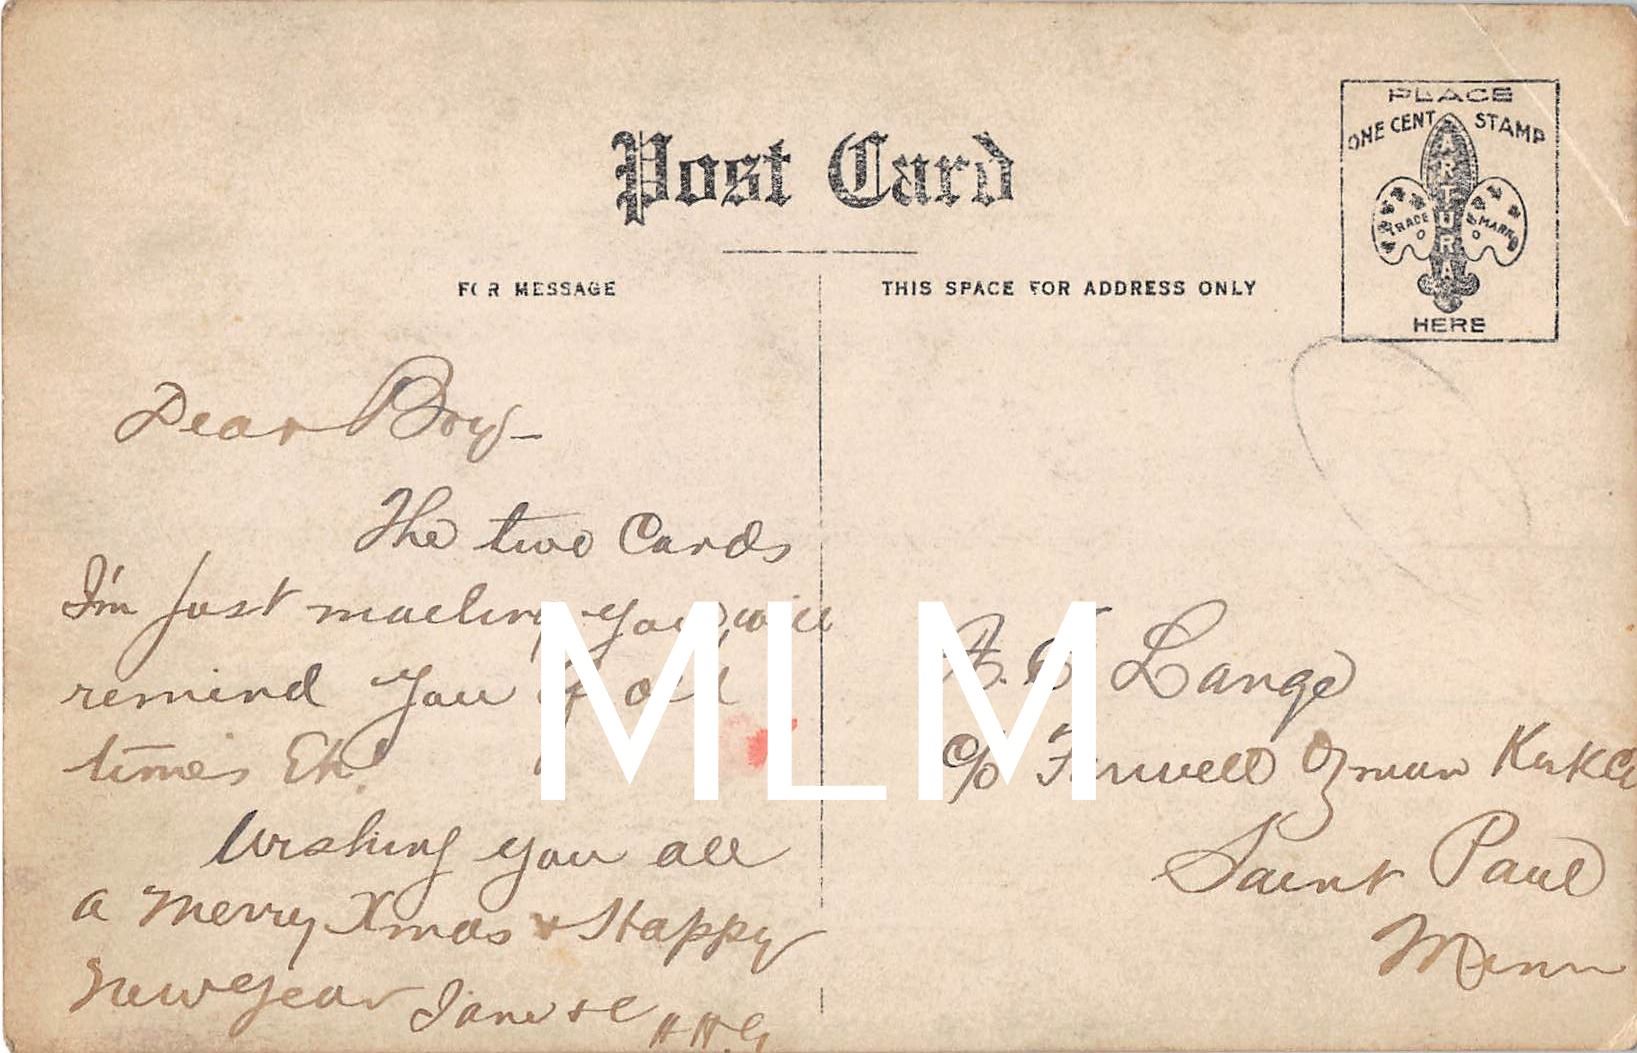 Post Card
FOR MESSAGE
THIS SPACE FOR ADDRESS ONLY
PLACE
ONE CENT STAMP
ARTURA
TRADE MARK
HERE
Dear Boy-
The two Cards
I'm just mailing you, will
remind you of old
times Eh!
Wishing you all
a Merry Xmas & Happy
New Year
H.H.G
Lange
c/o Farwell Ozmun Kirk Co
Saint Paul
Minn
MLM